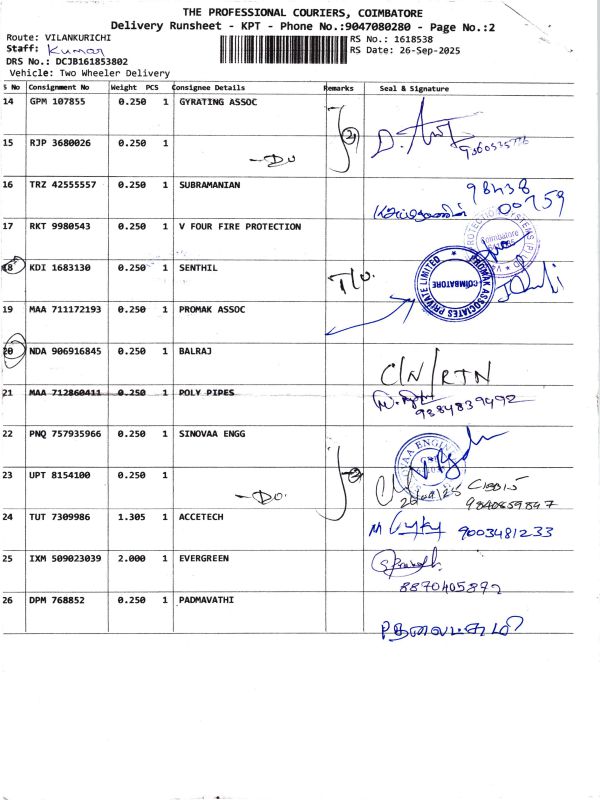 THE PROFESSIONAL COURIERS, COIMBATORE
Delivery Runsheet - KPT - Phone No.:9047080280 - Page No.:2
Route: VILANKURICHI RS No.: 1618538
Staff: Kumar RS Date: 26-Sep-2025
DRS No.: DCJB161853802
Vehicle: Two Wheeler Delivery
S No Consignment No Weight PCS Consignee Details Remarks Seal & Signature
14 GPM 107855 0.250 1 GYRATING ASSOC 2
15 RJP 3680026 0.250 1
-Do
16 TRZ 42555557 0.250 1 SUBRAMANIAN 98438
00759
17 RKT 9980543 0.250 1 V FOUR FIRE PROTECTION
18 KDI 1683130 0.250 1 SENTHIL
PROMAK ASSOCIATES PRIVATE LIMITED
COIMBATORE
19 MAA 711172193 0.250 1 PROMAK ASSOC
20 NDA 906916845 0.250 1 BALRAJ
C/N/RTN
21 MAA 712860411 0.250 1 POLY PIPES
9384839492
22 PNQ 757935966 0.250 1 SINOVAA ENGG
23 UPT 8154100 0.250 1 2
-Do.
9840859847
24 TUT 7309986 1.305 1 ACCETECH 9003481233
25 IXM 509023039 2.000 1 EVERGREEN
8870405872
26 DPM 768852 0.250 1 PADMAVATHI